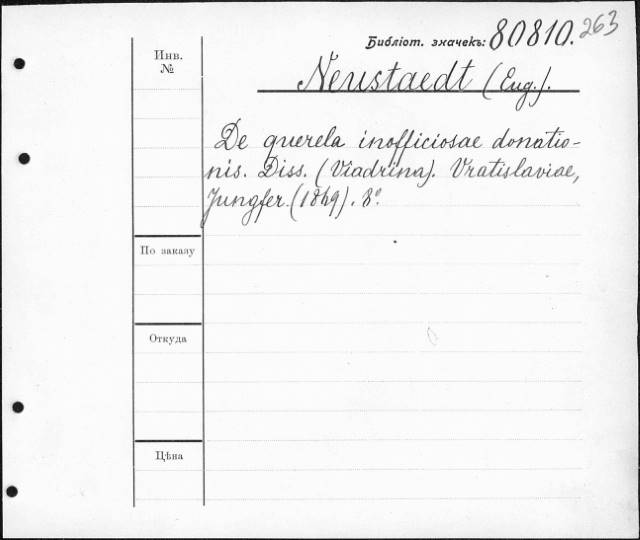 Библіот. значекъ: 80810. 263
Инв. №
Neustaedt (Eug.).
De querela inofficiosae donatio-
nis. Diss. (Viadrina). Vratislaviae,
Jungfer. (1869). 8º.
По заказу
Откуда
Цѣна